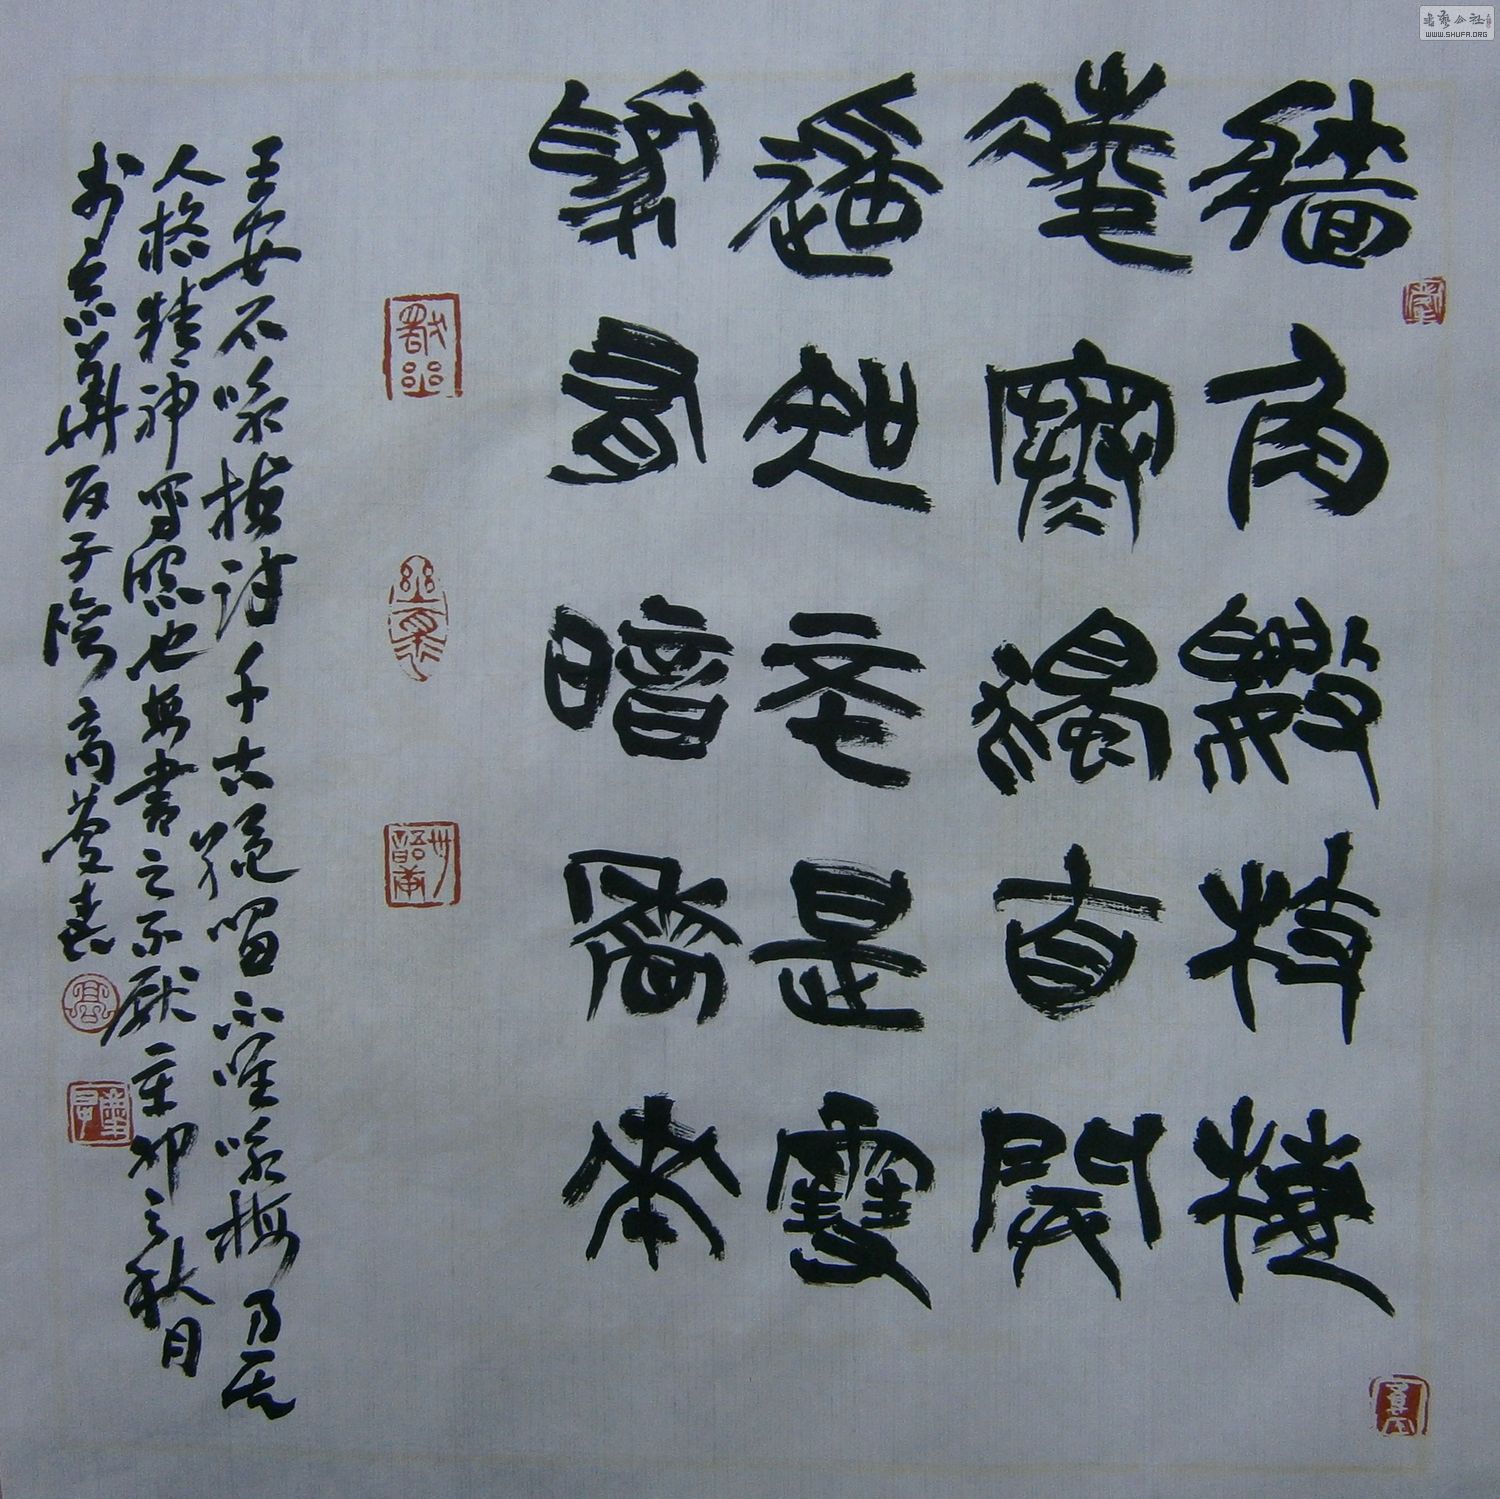 牆角數枝梅
凌寒獨自開
遥知不是雪
為有暗香來
王安石咏梅詩千古絕唱不唯咏梅乃其
人格精神寫照也每書之不厭辛卯之秋月
京華 子 高 春
書藝公社
WWW.SHUFA.ORG